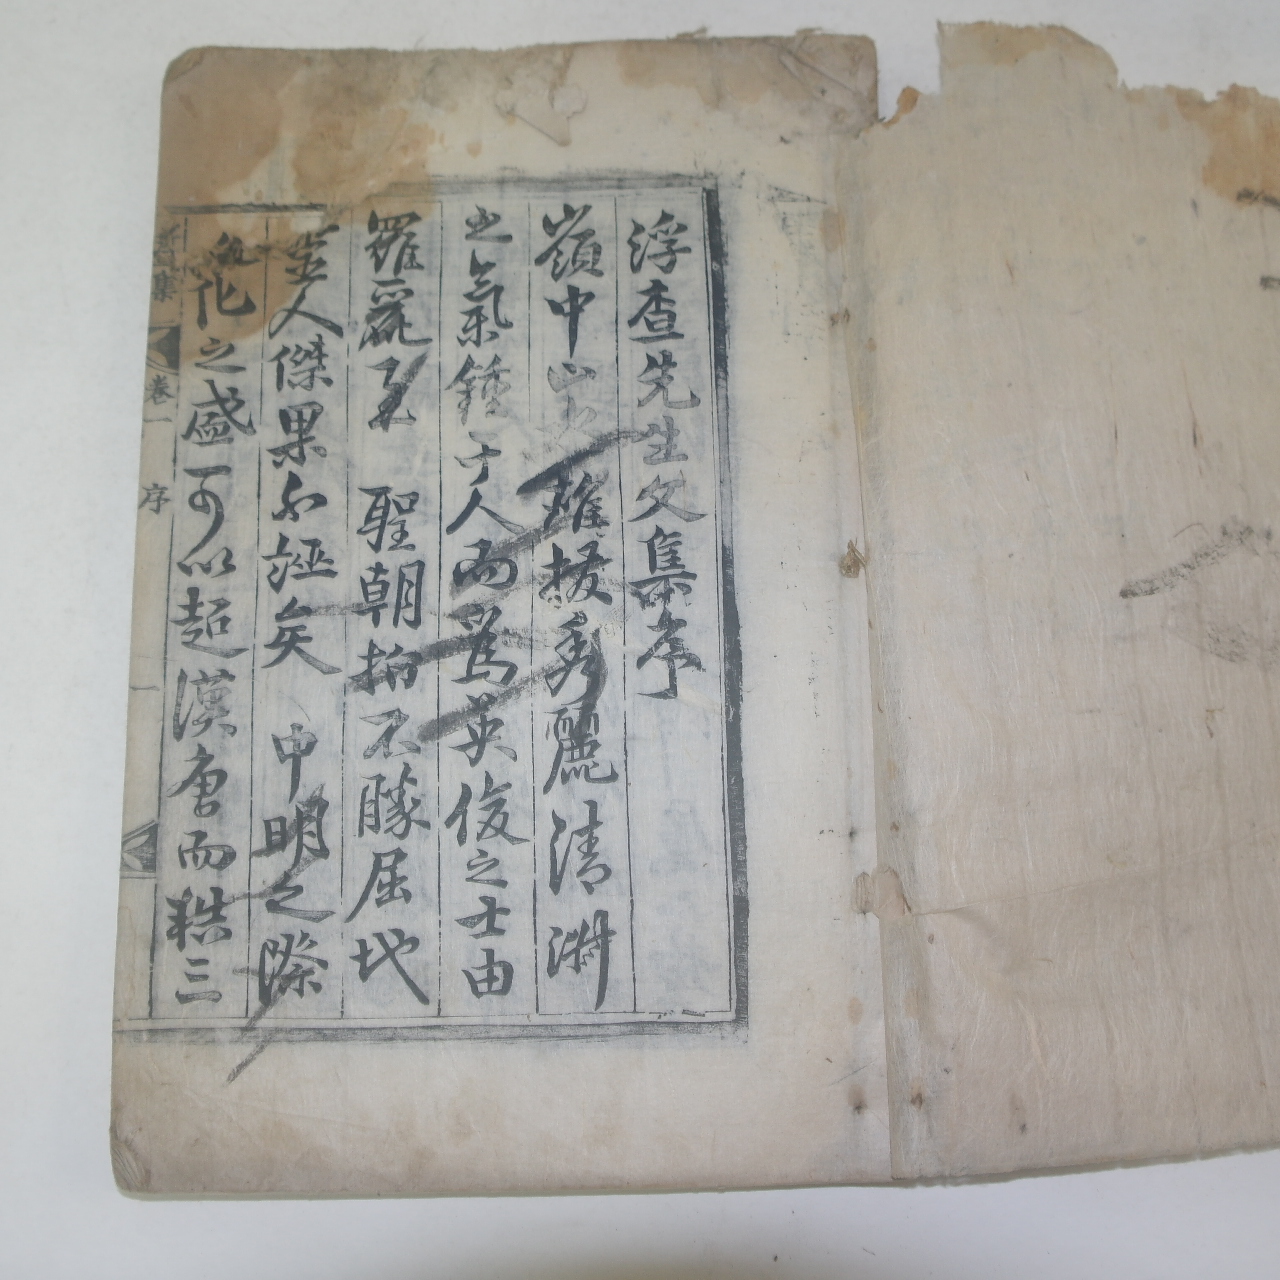 浮查先生文集序
嶺中山 雄拔秀麗清淵
之氣鍾于人而爲英俊之士由
羅麗至 聖朝拍不勝屈地
靈人傑果不誣矣 中明之際
化之盛可以超漢唐而軼三
查集 卷一 序 一